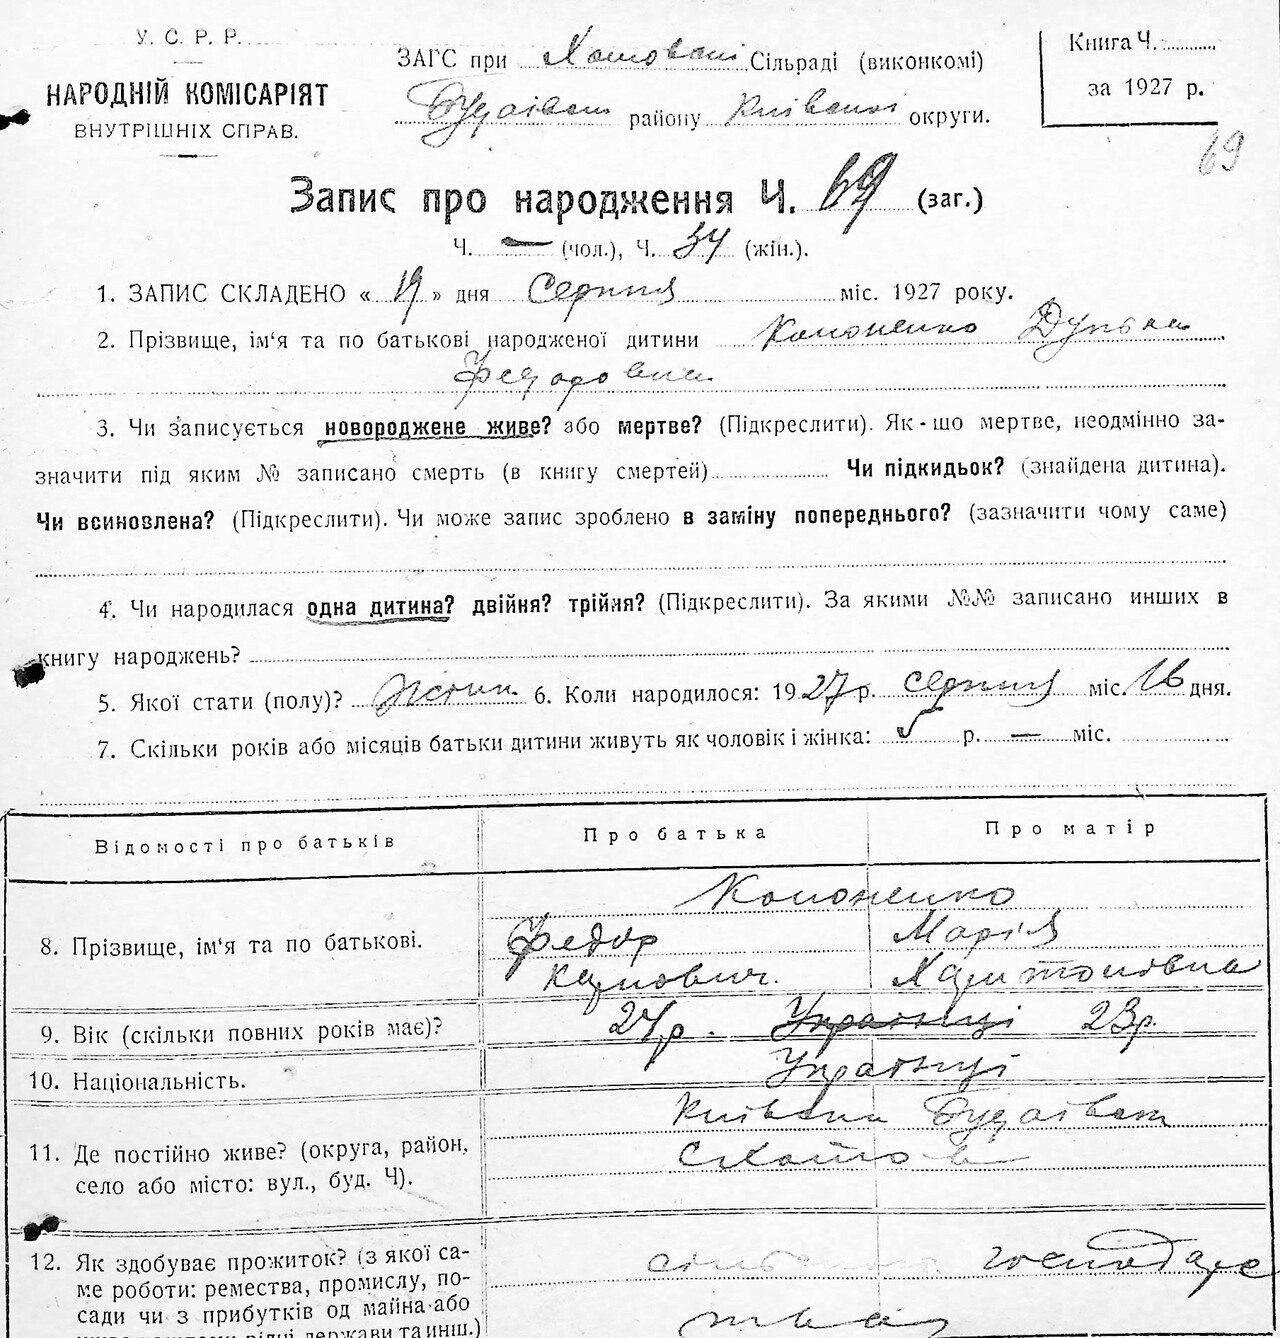 У. С. Р. Р.
НАРОДНІЙ КОМІСАРІЯТ
ВНУТРІШНІХ СПРАВ.
ЗАГС при Хотовські Сільраді (виконкомі)
Будаївськ району Київської округи.
Книга Ч.
за 1927 р.
69
Запис про народження Ч. 69 (заг.)
Ч. — (чол.), Ч. 34 (жін.).
1. ЗАПИС СКЛАДЕНО « 19 » дня Серпня міс. 1927 року.
2. Прізвище, ім‘я та по батькові народженої дитини Кононенко
Федоровна
3. Чи записується новороджене живе? або мертве? (Підкреслити). Як-шо мертве, неодмінно за-
значити під яким № записано смерть (в книгу смертей) Чи підкидьок? (знайдена дитина).
Чи всиновлена? (Підкреслити). Чи може запис зроблено в заміну попереднього? (зазначити чому саме)
4. Чи народилася одна дитина? двійня? трійня? (Підкреслити). За якими №№ записано инших в
книгу народжень?
5. Якої стати (полу)? 6. Коли народилося: 1927 р. серпня міс. 16 дня.
7. Скільки років або місяців батьки дитини живуть як чоловік і жінка: 5 р. — міс.
Відомості про батьків
Про батька
Про матір
8. Прізвище, ім‘я та по батькові.
Кононенко
Федор
Марія
Карпович.
Харитоновна
9. Вік (скільки повних років має)?
24р. Українці 23р.
10. Національність.
Українці
11. Де постійно живе? (округа, район,
село або місто: вул., буд. Ч).
Київськ Будаївськ
с Хотов
12. Як здобуває прожиток? (з якої са-
ме роботи: ремества, промислу, по-
сади чи з прибутків од майна або
держави та инш.)
сільське господарс
тва